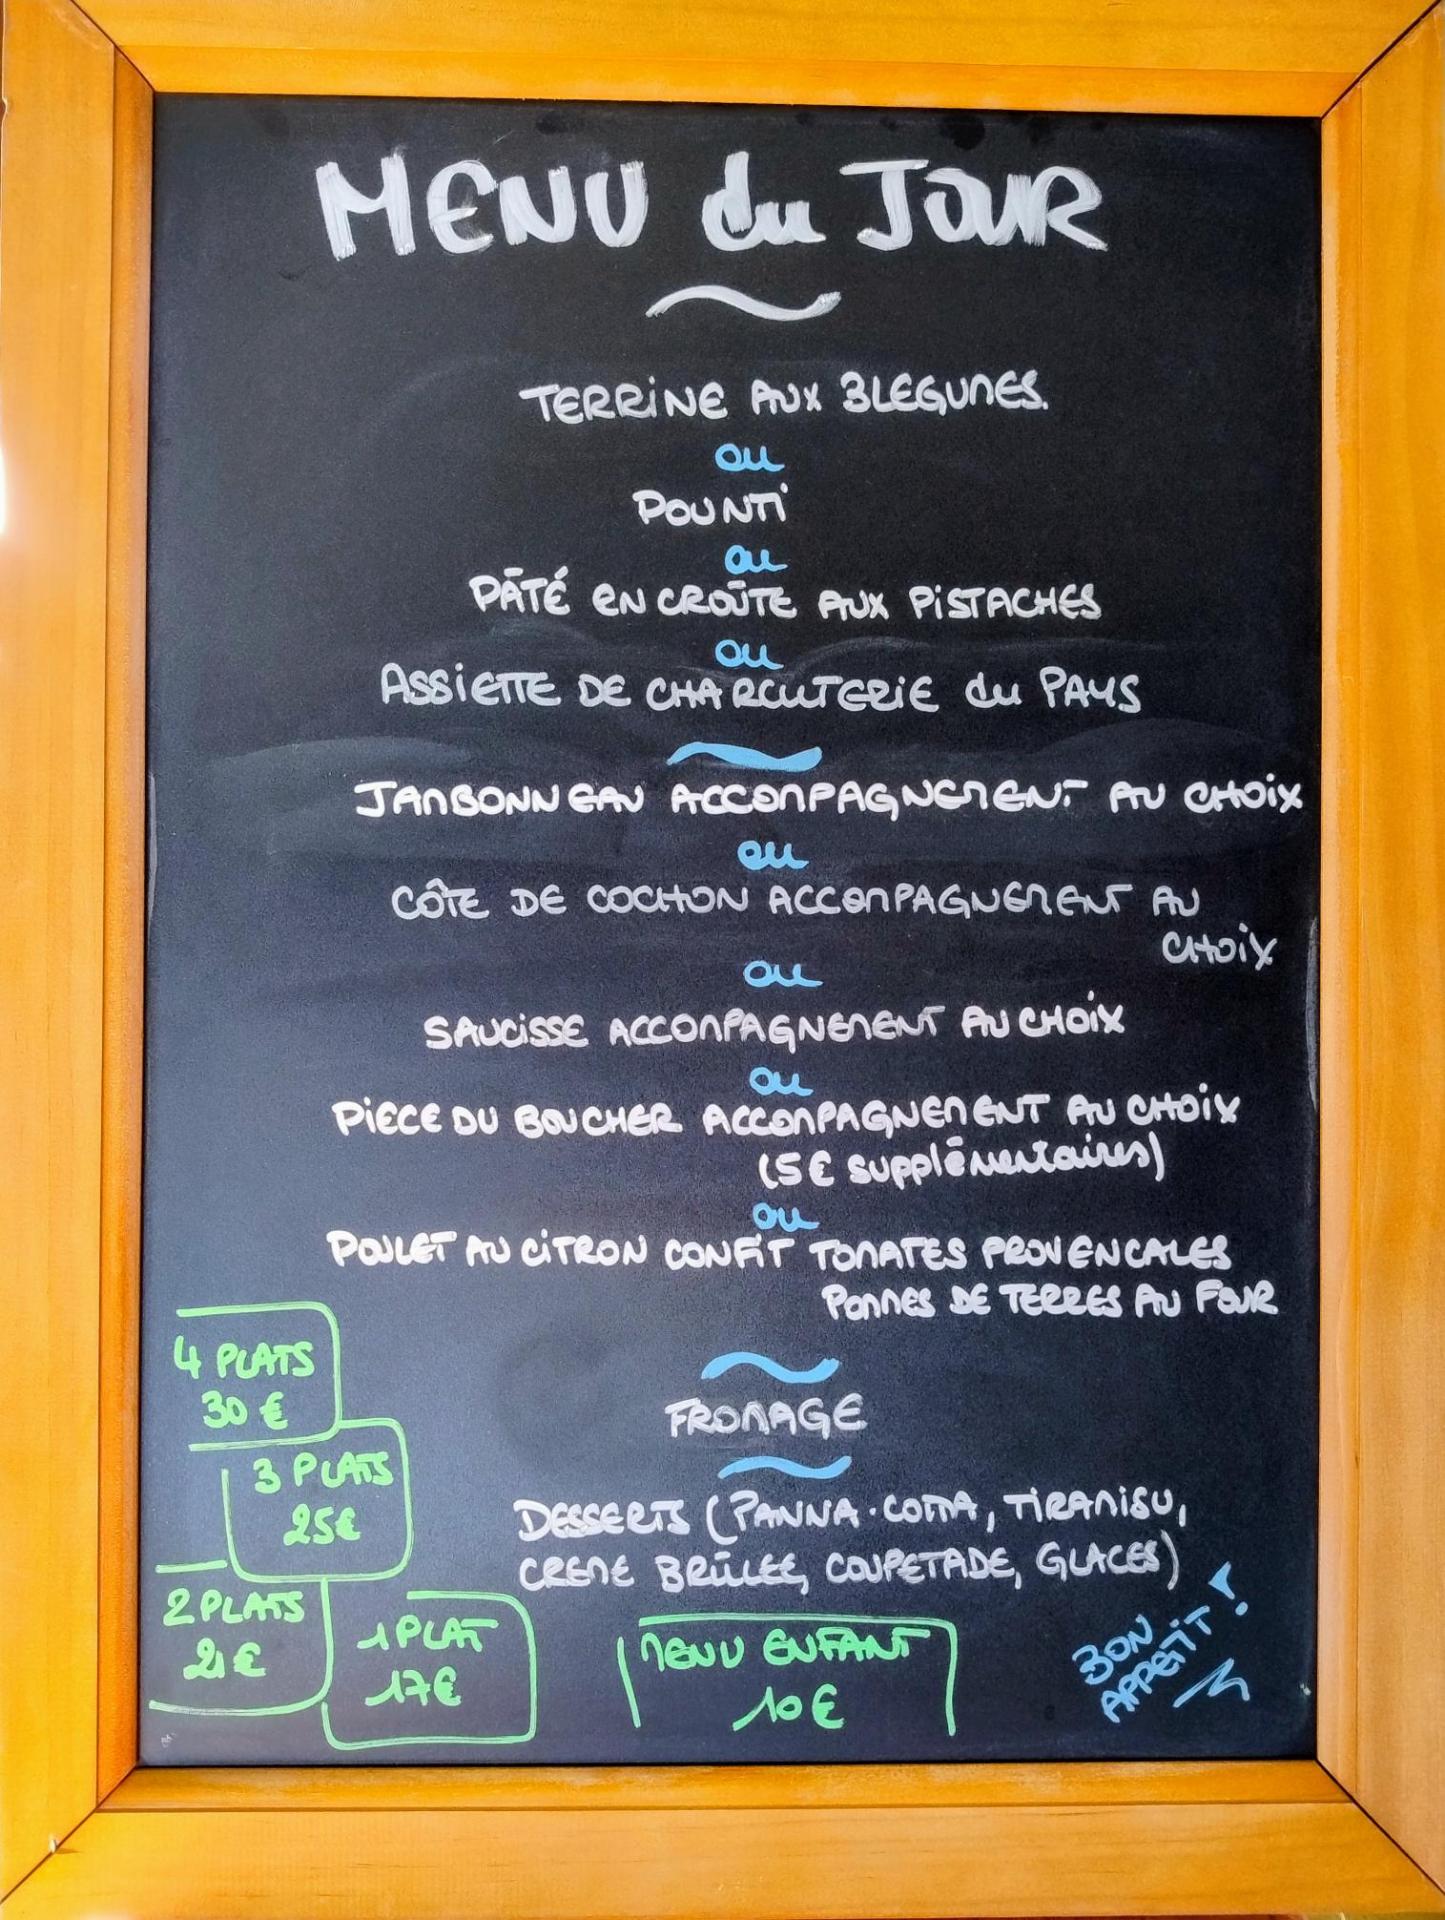 MENU du JOUR
TERRINE AUX 3 LEGUMES.
ou
POUNTI
ou
PÂTÉ EN CROÛTE AUX PISTACHES
ou
ASSIETTE DE CHARCUTERIE du PAYS
JAMBONNEAU ACCOMPAGNEMENT AU CHOIX
ou
CÔTE DE COCHON ACCOMPAGNEMENT AU
CHOIX
ou
SAUCISSE ACCOMPAGNEMENT AU CHOIX
ou
PIECE DU BOUCHER ACCOMPAGNEMENT AU CHOIX
(5€ supplémentaires)
ou
POULET AU CITRON CONFIT TOMATES PROVENCALES
POMMES DE TERRES AU FOUR
FROMAGE
DESSERTS (PANNA-COTTA, TIRAMISU,
CREME BRÛLEE, COUPETADE, GLACES)
4 PLATS
30 €
3 PLATS
25€
2 PLATS
21€
1 PLAT
17€
MENU ENFANT
10€
BON
APPETIT !